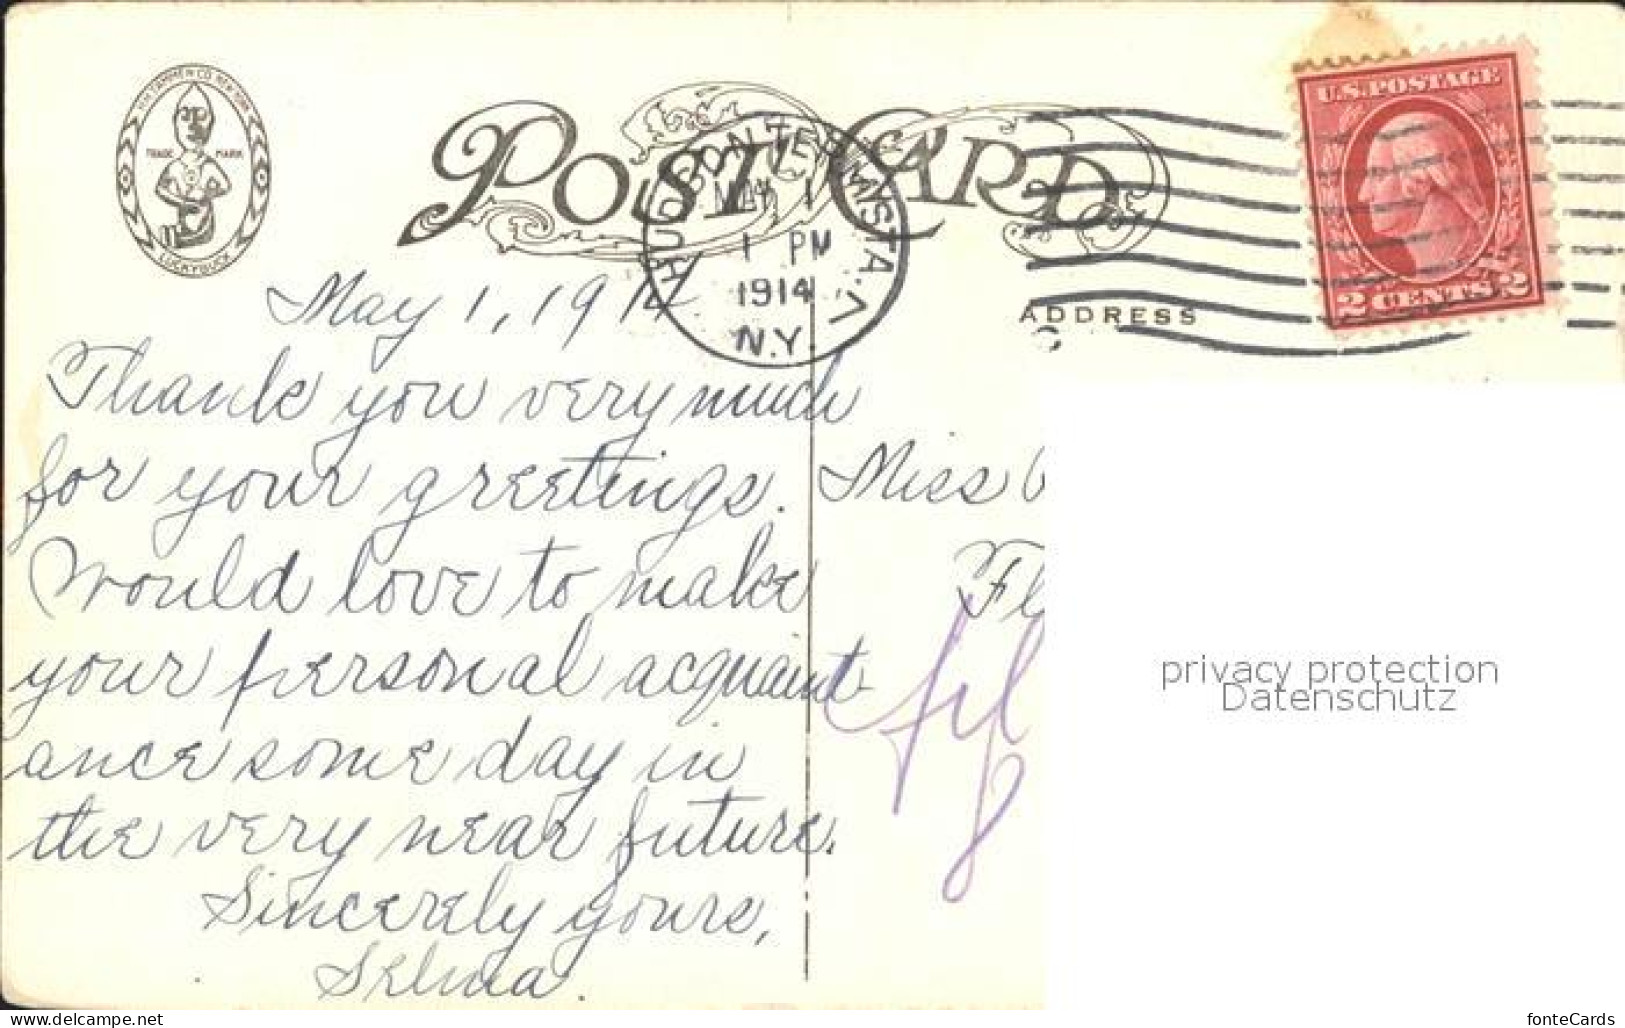 H.H. TAMMEN CO. NEW YORK
TRADE MARK
LUCKYBUCK
POST CARD
HUDSON TERM. STA.
MAY 1
1 PM
1914
N.Y.
U.S. POSTAGE
2 CENTS 2
ADDRESS
May 1, 1914
Thank you very much
for your greetings.
Would love to make
your personal acquaint-
ance some day in
the very near future.
Sincerely yours,
Selma.
Miss
Fl
privacy protection
Datenschutz
www.delcampe.net
fonteCards